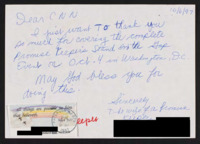 Dear CNN
10/6/97
I just want to thank you
so much for covering the complete
Promise Keepers Stand in the Gap
Event on Oct. 4 in Washington, DC
May God bless you for
doing this.
Sincerely
Promise
Keeper